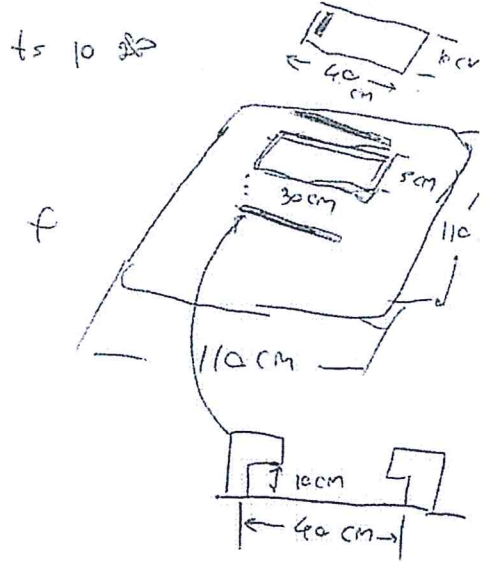 ts 10
10 cm
40 cm
5 cm
30 cm
f
110
110 cm
10 cm
40 cm